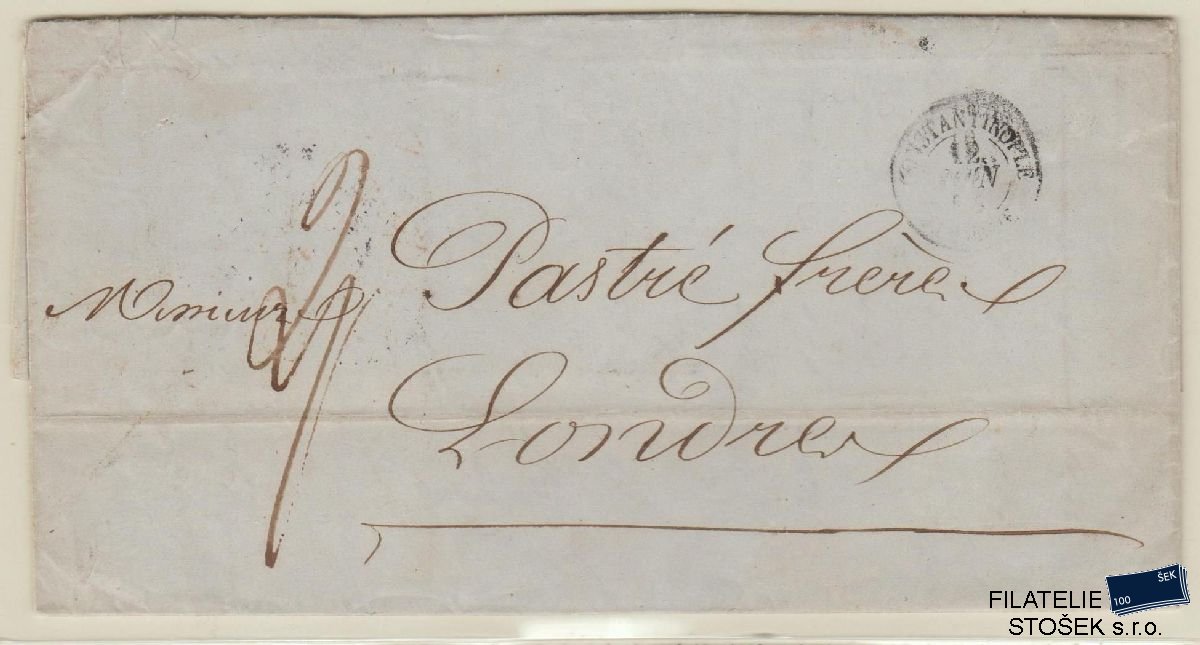 CONSTANTINOPLE
12
JUIN
Messieurs Pastré frères
Londres
FILATELIE
STOŠEK s.r.o.
100 ŠEK